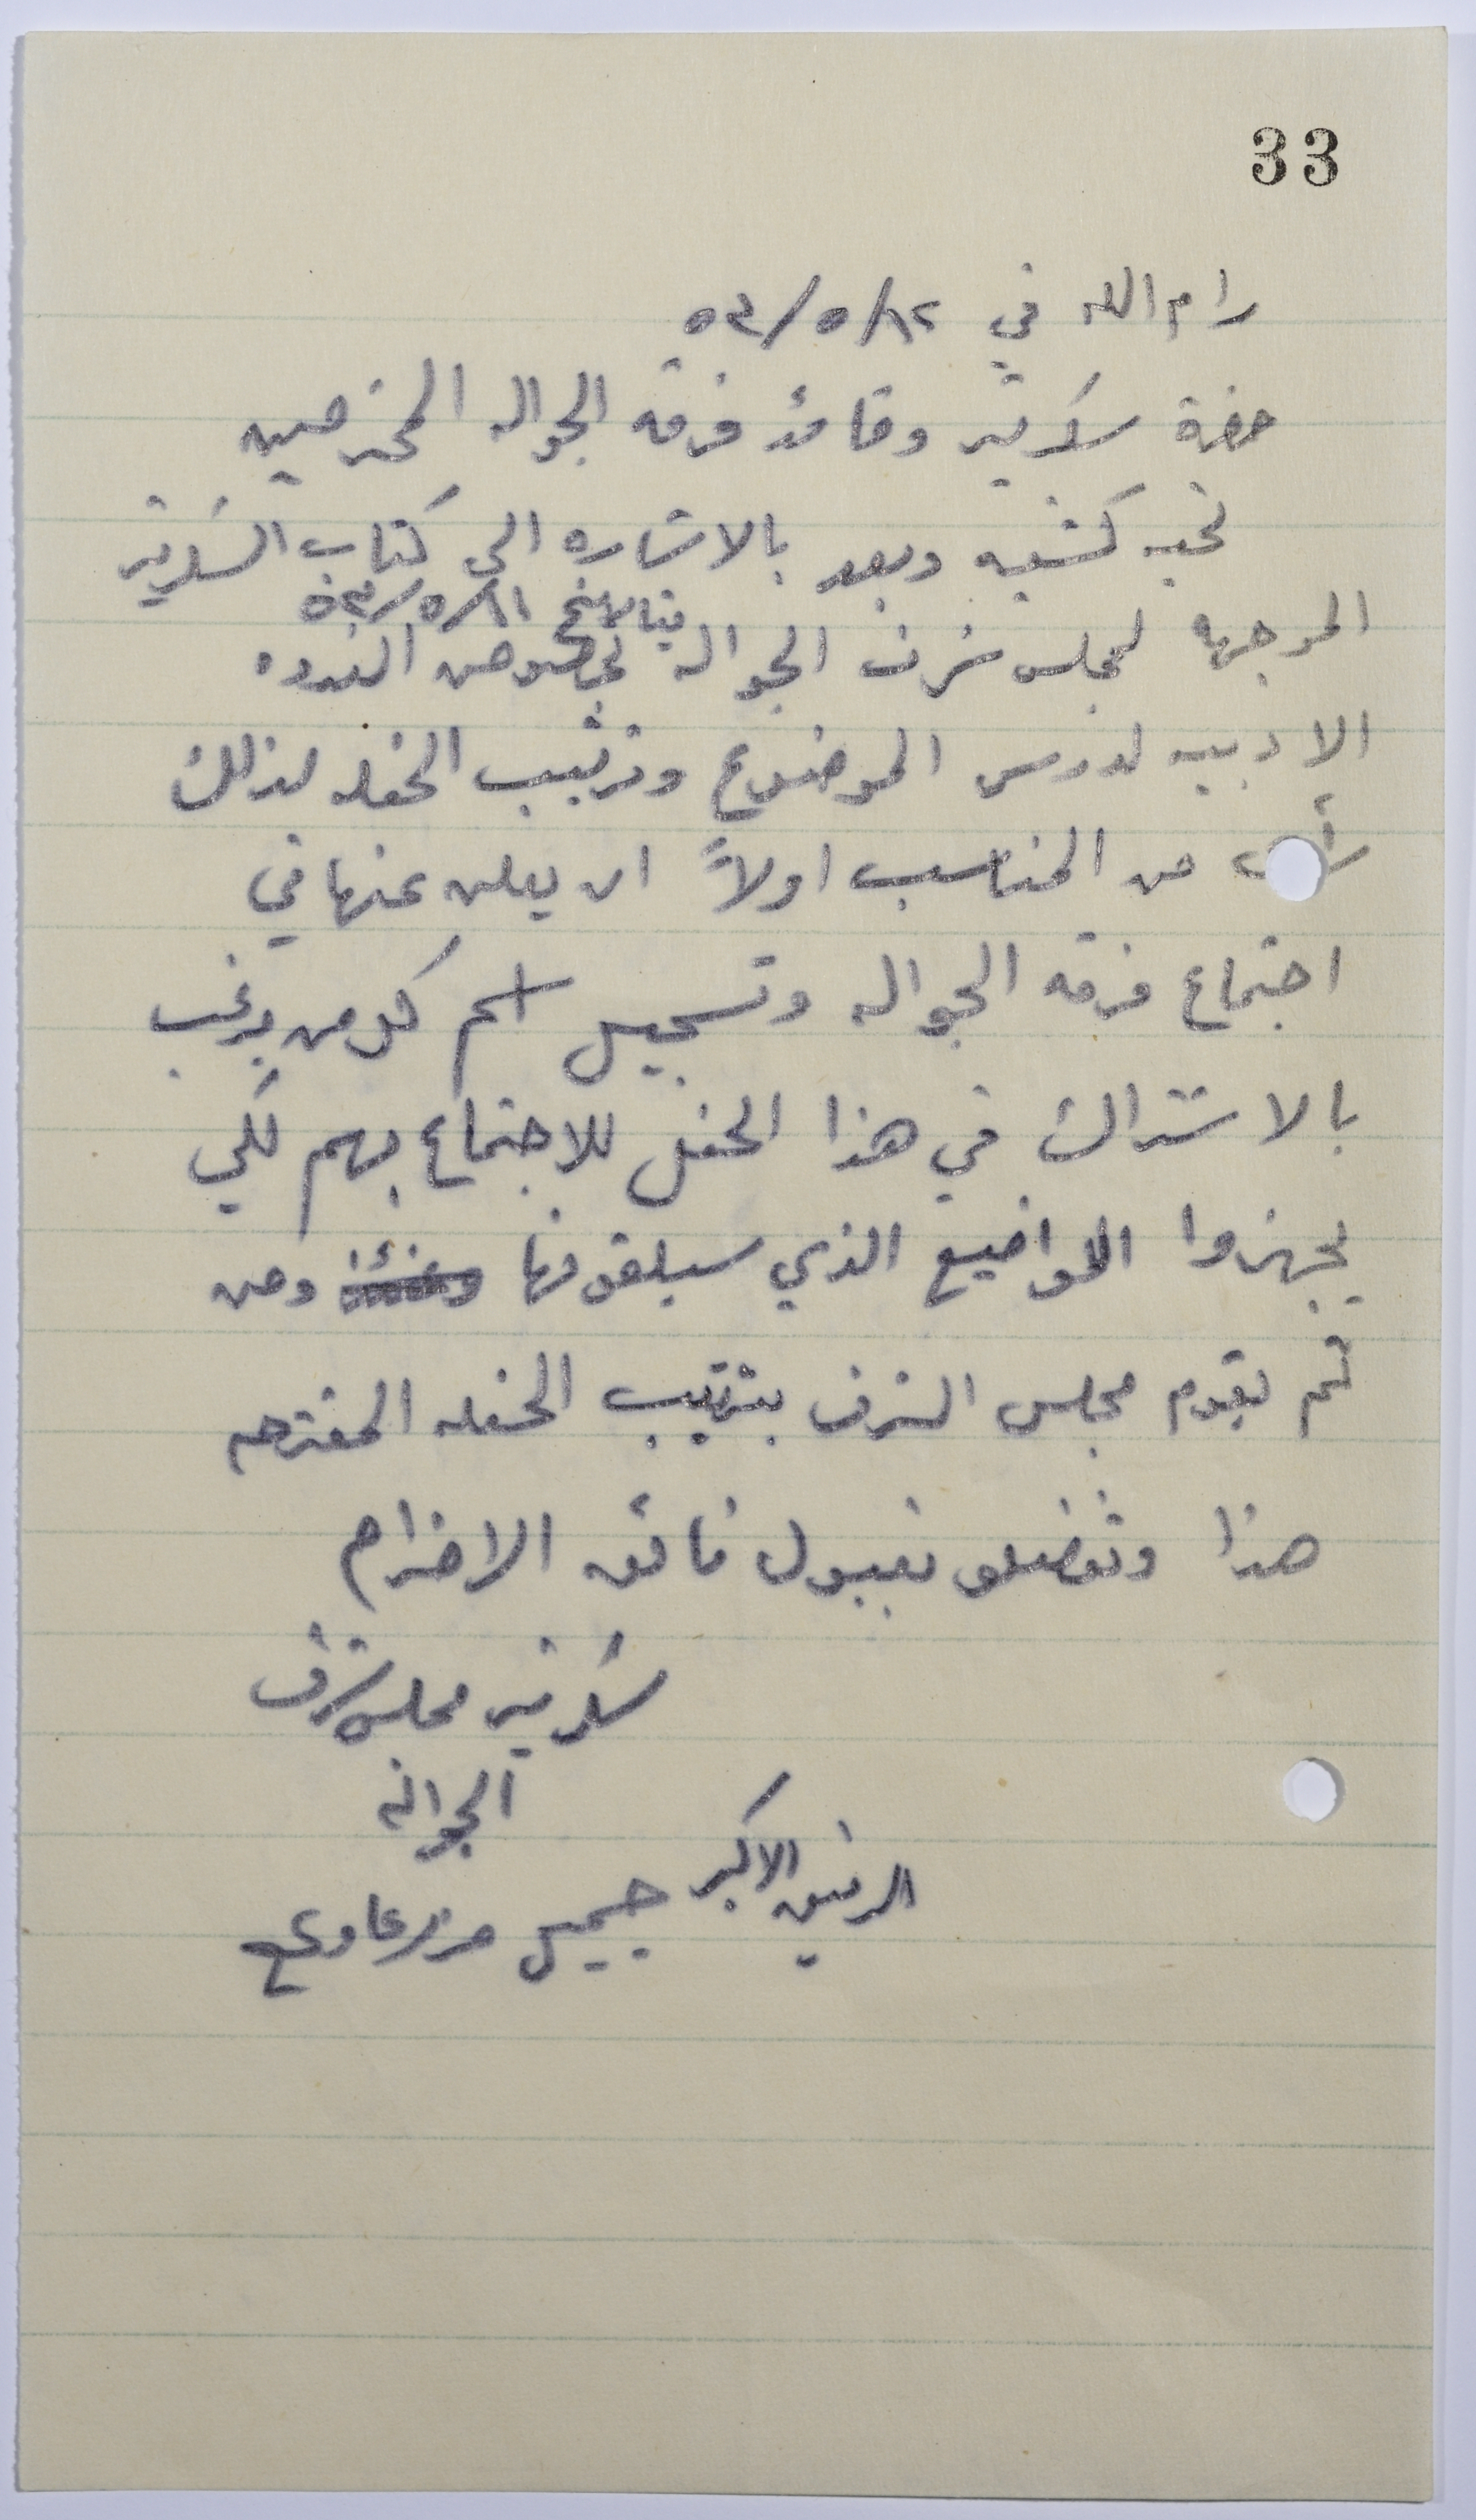 33
رام الله في ١٢/٥/٥٣
حضرة سكرتير وقائد فرقة الجواله المحترمين
تحيه كشفيه وبعد بالاشاره الى كتاب السكرتير
بتاريخ ١١/٥/٥٣
الموجهه لمجلس شرف الجواله بخصوص الندوه
الادبيه لدرس الموضوع وترتيب الحفله لذلك
من المناسب اولاً ان يعلن عنها في
اجتماع فرقه الجواله وتسجيل اسم كل من يرغب
بالاشتراك في هذا الحفل للاجتماع بهم لكي
يجهزوا المواضيع الذي سيلقونها ومن
ثم يقوم مجلس الشرف بترتيب الحفله المقترحه
هذا وتفضلو بقبول فائق الاحترام
سكرتير مجلس شرف
الجواله
الرفيق الاكبر جميل